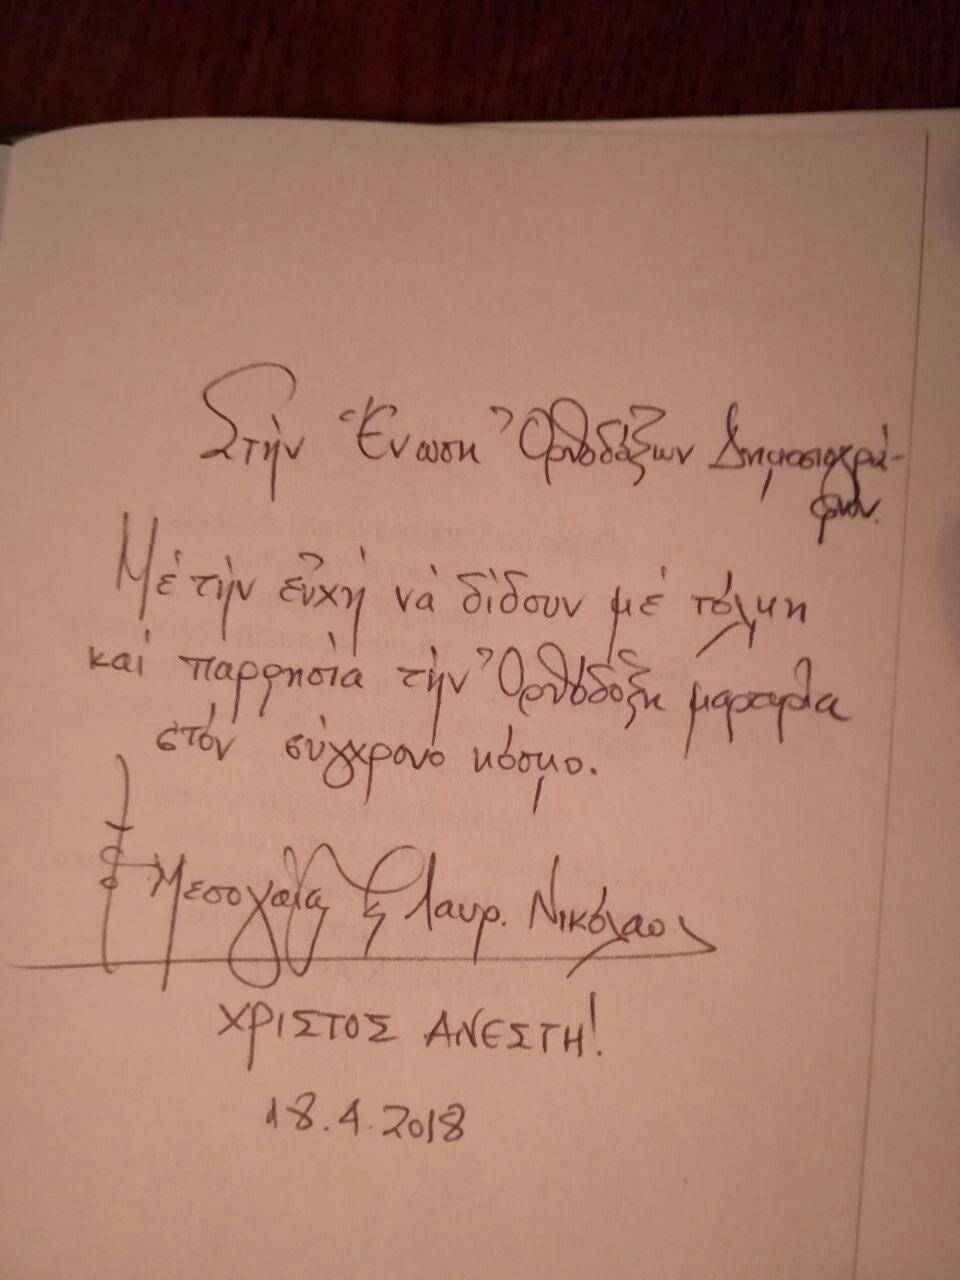 Στὴν Ἕνωση Ὀρθοδόξων Δημοσιογρά-
φων.
Μὲ τὴν εὐχὴ νὰ δίδουν μὲ τόλμη
καὶ παρρησία τὴν Ὀρθόδοξη μαρτυρία
στὸν σύγχρονο κόσμο.
† ὁ Μεσογαίας & Λαυρ. Νικόλαος
ΧΡΙΣΤΟΣ ΑΝΕΣΤΗ!
18.4.2018